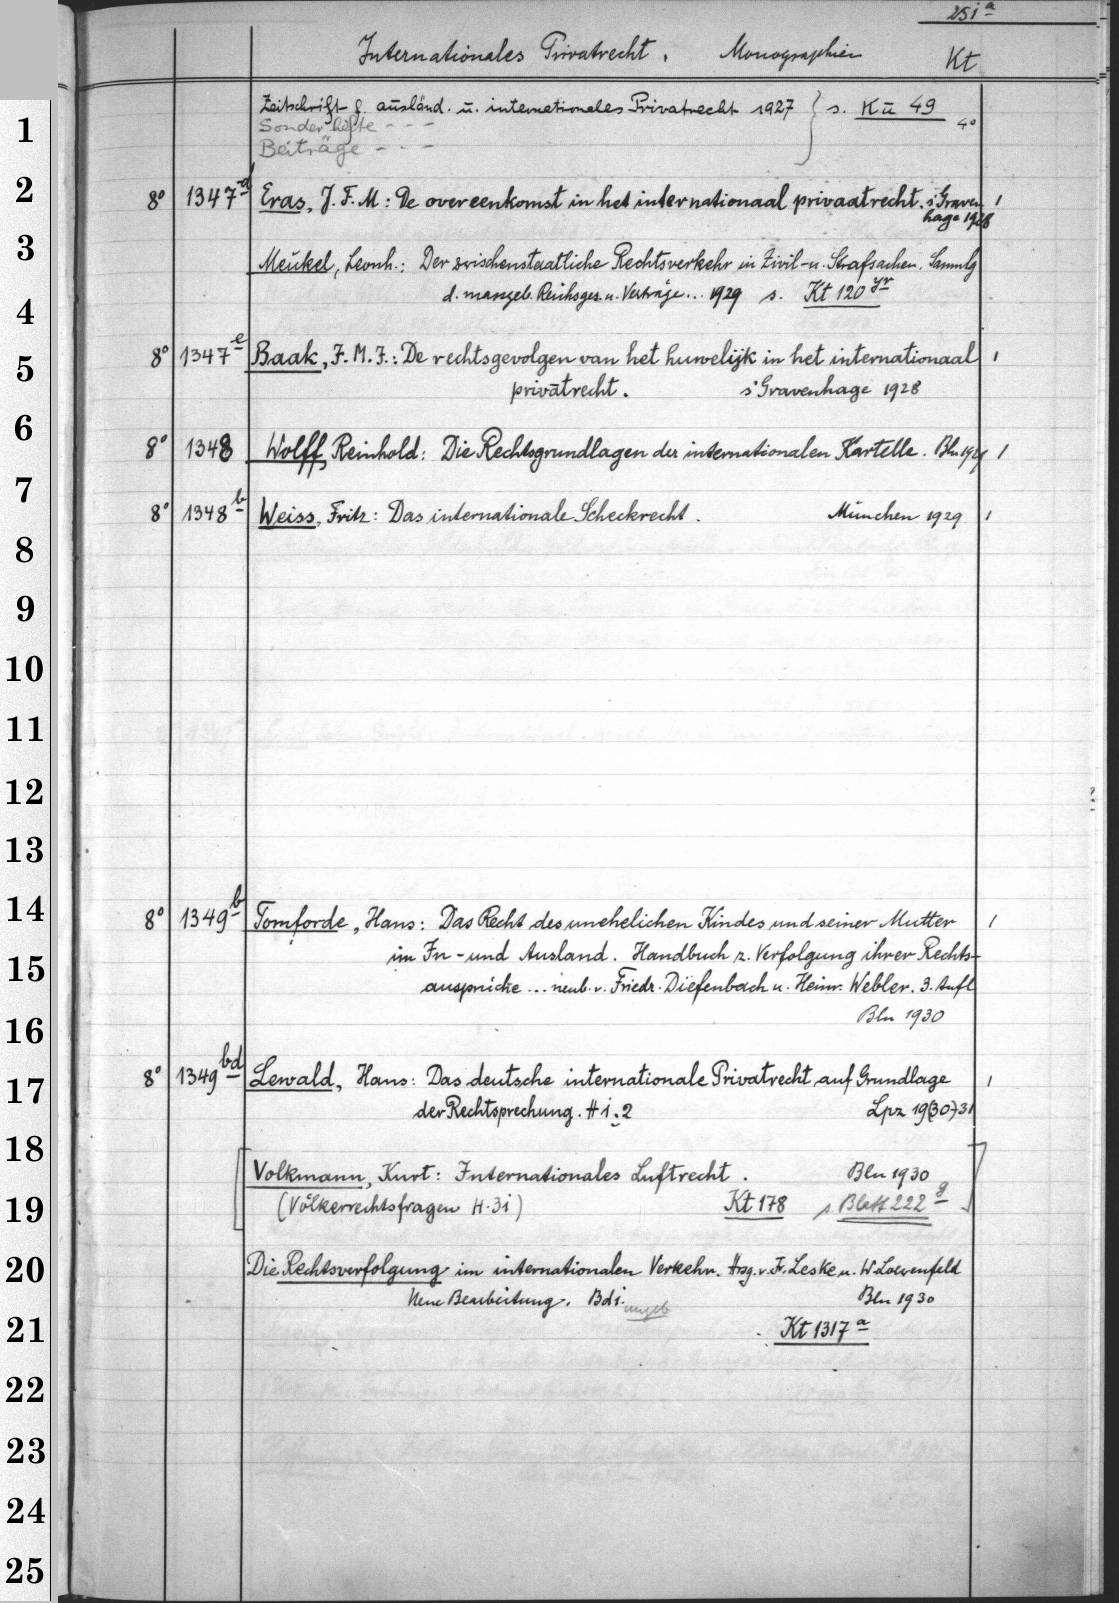 251 a
Internationales Privatrecht. Monographien Kt
1 Zeitschrift f. ausländ. u. internationales Privatrecht 1927 } s. Kü 49 4°
Sonderhefte - - -
Beiträge - - -
2 8° 1347 d Eras, J. F. M: De overeenkomst in het internationaal privaatrecht. s'Graven 1
hage 1928
3 Meukel, Leonh.: Der zwischenstaatliche Rechtsverkehr in Zivil- u. Strafsachen. Sammlg
4 d. massgeb. Reichsges. u. Verträge... 1929 s. Kt 120 yr
5 8° 1347 e Baak, J. M. J.: De rechtsgevolgen van het huwelijk in het internationaal 1
privatrecht. s'Gravenhage 1928
6
8° 1348 Wolff, Reinhold: Die Rechtsgrundlagen der internationalen Kartelle. Bln 1929 1
7
8° 1348 b Weiss, Fritz: Das internationale Scheckrecht. München 1929 1
8
9
10
11
12
13
14 8° 1349 b Tomforde, Hans: Das Recht des unehelichen Kindes und seiner Mutter 1
15 im In- und Ausland. Handbuch z. Verfolgung ihrer Rechts-
ansprüche ... neub. v. Friedr. Diefenbach u. Heinr. Webler. 3. Aufl
16 Bln 1930
17 8° 1349 bd Lewald, Hans: Das deutsche internationale Privatrecht auf Grundlage 1
der Rechtsprechung. H 1. 2 Lpz 19(30)31
18
[Volkmann, Kurt: Internationales Luftrecht. Bln 1930]
19 (Völkerrechtsfragen H. 31) Kt 178 s. Blatt 222 g
20 Die Rechtsverfolgung im internationalen Verkehr. Hrsg. v. F. Leske u. W Loewenfeld
Neue Bearbeitung. Bd 1. Bln 1930
21 Kt 1317 a
22
23
24
25